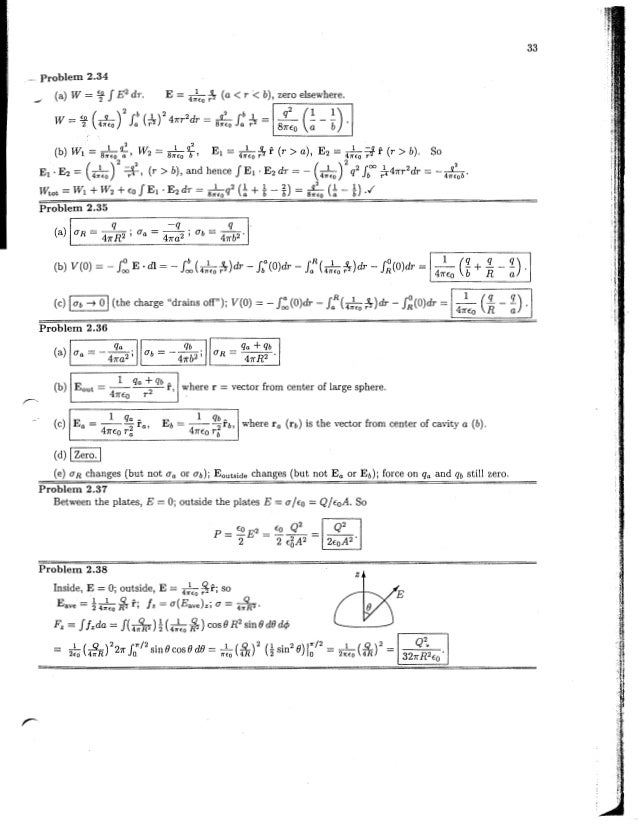 33
Problem 2.34
(a) W = ε₀/2 ∫ E² dτ. E = 1/4πε₀ q/r² r̂ (a < r < b), zero elsewhere.
W = ε₀/2 (q/4πε₀)² ∫ₐᵇ (1/r²)² 4πr²dr = q²/8πε₀ ∫ₐᵇ 1/r² = q²/8πε₀ (1/a − 1/b).
(b) W₁ = 1/8πε₀ q²/a, W₂ = 1/8πε₀ q²/b, E₁ = 1/4πε₀ q/r² r̂ (r > a), E₂ = 1/4πε₀ −q/r² r̂ (r > b). So
E₁ · E₂ = (1/4πε₀)² −q²/r⁴, (r > b), and hence ∫ E₁ · E₂ dτ = −(1/4πε₀)² q² ∫_b^∞ 1/r⁴ 4πr²dr = −q²/4πε₀b.
Wtot = W₁ + W₂ + ε₀ ∫ E₁ · E₂ dτ = 1/8πε₀ q² (1/a + 1/b − 2/b) = q²/8πε₀ (1/a − 1/b). ✓
Problem 2.35
(a) σ_R = q/4πR²; σₐ = −q/4πa²; σ_b = q/4πb².
(b) V(0) = −∫_∞^0 E · dl = −∫_∞^b (1/4πε₀ q/r²)dr − ∫_b^a (0)dr − ∫_a^R (1/4πε₀ q/r²)dr − ∫_R^0 (0)dr = 1/4πε₀ (q/b + q/R − q/a).
(c) σ_b → 0 (the charge "drains off"); V(0) = −∫_∞^a (0)dr − ∫_a^R (1/4πε₀ q/r²)dr − ∫_R^0 (0)dr = 1/4πε₀ (q/R − q/a).
Problem 2.36
(a) σₐ = −qₐ/4πa²; σ_b = −q_b/4πb²; σ_R = (qₐ + q_b)/4πR².
(b) E_out = 1/4πε₀ (qₐ + q_b)/r² r̂, where r = vector from center of large sphere.
(c) Eₐ = 1/4πε₀ qₐ/rₐ² r̂ₐ, E_b = 1/4πε₀ q_b/r_b² r̂_b, where rₐ (r_b) is the vector from center of cavity a (b).
(d) Zero.
(e) σ_R changes (but not σₐ or σ_b); E_outside changes (but not Eₐ or E_b); force on qₐ and q_b still zero.
Problem 2.37
Between the plates, E = 0; outside the plates E = σ/ε₀ = Q/ε₀A. So
P = ε₀/2 E² = ε₀/2 Q²/ε₀²A² = Q²/2ε₀A².
Problem 2.38
Inside, E = 0; outside, E = 1/4πε₀ Q/r² r̂; so
E_ave = 1/2 1/4πε₀ Q/R² r̂; f_z = σ(E_ave)_z; σ = Q/4πR².
F_z = ∫ f_z da = ∫(Q/4πR²) 1/2 (1/4πε₀ Q/R²) cos θ R² sin θ dθ dϕ
= 1/2ε₀ (Q/4πR)² 2π ∫₀^π/2 sin θ cos θ dθ = 1/πε₀ (Q/4R)² (1/2 sin² θ)|₀^π/2 = 1/2πε₀ (Q/4R)² = Q²/32πR²ε₀.
z
E
θ